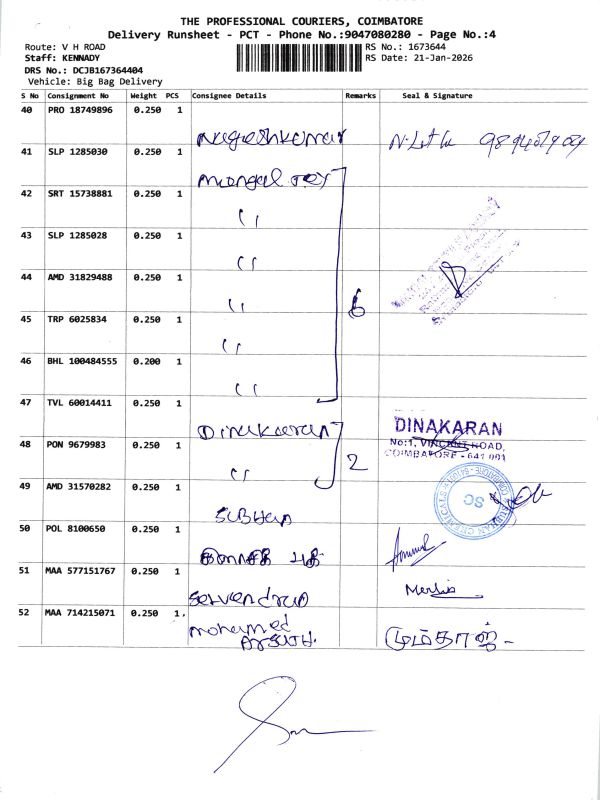 THE PROFESSIONAL COURIERS, COIMBATORE
Delivery Runsheet - PCT - Phone No.:9047080280 - Page No.:4
Route: V H ROAD
Staff: KENNADY
DRS No.: DCJB167364404
Vehicle: Big Bag Delivery
RS No.: 1673644
RS Date: 21-Jan-2026
S No Consignment No Weight PCS Consignee Details Remarks Seal & Signature
40 PRO 18749896 0.250 1 Nageshkumar
41 SLP 1285030 0.250 1 Mangal
42 SRT 15738881 0.250 1 ''
43 SLP 1285028 0.250 1 ''
44 AMD 31829488 0.250 1 '' 6
45 TRP 6025834 0.250 1 ''
46 BHL 100484555 0.200 1 ''
47 TVL 60014411 0.250 1 Dinakaran
DINAKARAN
No:1, VINCENT ROAD,
COIMBATORE - 641 001
48 PON 9679983 0.250 1 '' 2
49 AMD 31570282 0.250 1
SC
50 POL 8100650 0.250 1
51 MAA 577151767 0.250 1
52 MAA 714215071 0.250 1 mohamed
மும்தாஜ்